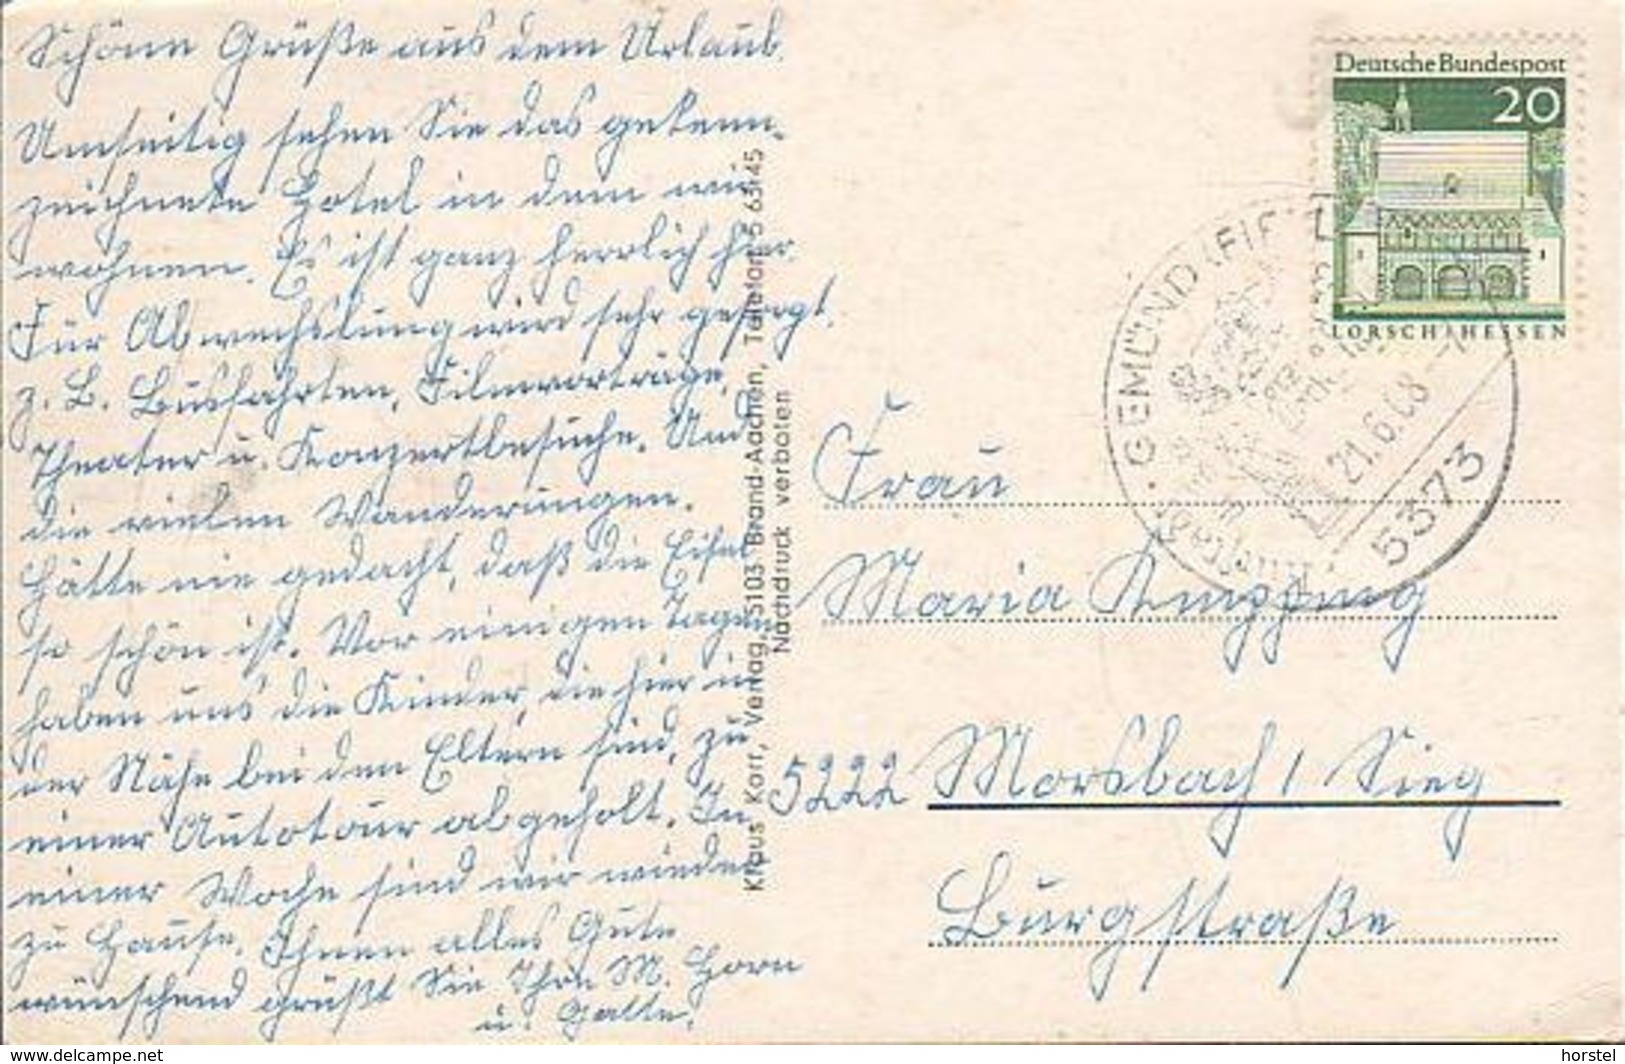 Schöne Grüße aus dem Urlaub.
Umseitig sehen Sie das gekenn-
zeichnete Hotel in dem wir
wohnen. Es ist ganz herrlich hier.
Für Abwechslung wird sehr gesorgt.
z. B. Busfahrten, Filmvorträge,
Theater u. Konzertbesuche. Und
die vielen Wanderungen.
Hätte nie gedacht, daß die Eifel
so schön ist. Vor einigen Tagen
haben uns die Kinder, die hier in
der Nähe bei den Eltern sind, zu
einer Autotour abgeholt. In
einer Woche sind wir wieder
zu Hause. Ihnen alles Gute
wünschend grüßt Sie Ihre M. Horn
u. Gatte.
Klaus Korr, Verlag, 5103 Brand-Aachen, Telefon 5 63 45
Nachdruck verboten
Deutsche Bundespost
20
LORSCH/HESSEN
GEMÜND (EIFEL)
21.6.68
5373
Frau
Maria
5222 Morsbach / Sieg
Burgstraße
www.delcampe.net
horstel